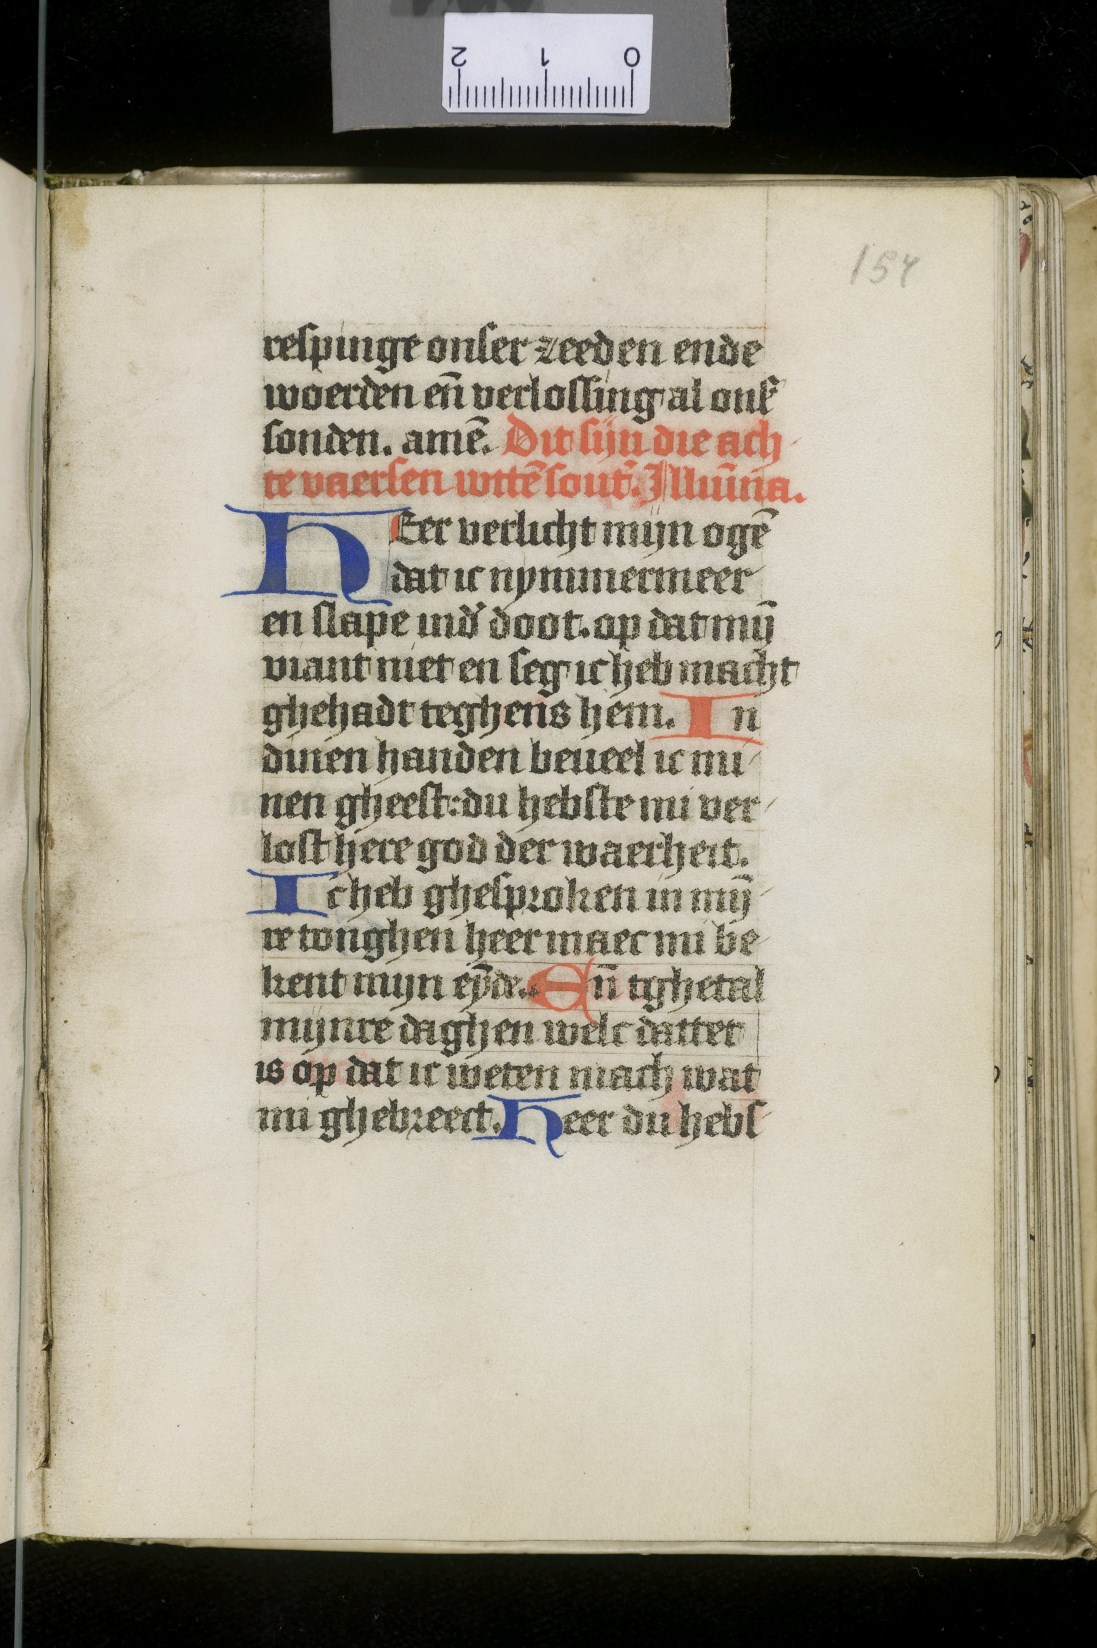 2 1 0
154
respinge onser zeeden ende
woerden eñ verlossing al ons̉
sonden. amē. Dit sijn die ach
te vaersen wttē sout̉. Illumīna.
HEer verlicht mijn ogē
dat ic nymmermeer
en slape ind̉ doot. op dat mij̄
viant niet en seg ic heb macht
ghehadt teghens hem. In
dinen handen beueel ic mi
nen gheest: du hebste mi ver
lost here god der waerheit.
Ic heb ghesproken in mij̄
re tonghen heer maec mi be
kent mijn eȳde. Eñ tghetal
mijnre daghen welc dattet
is op dat ic weten mach wat
mi ghebreect. Heer du hebs